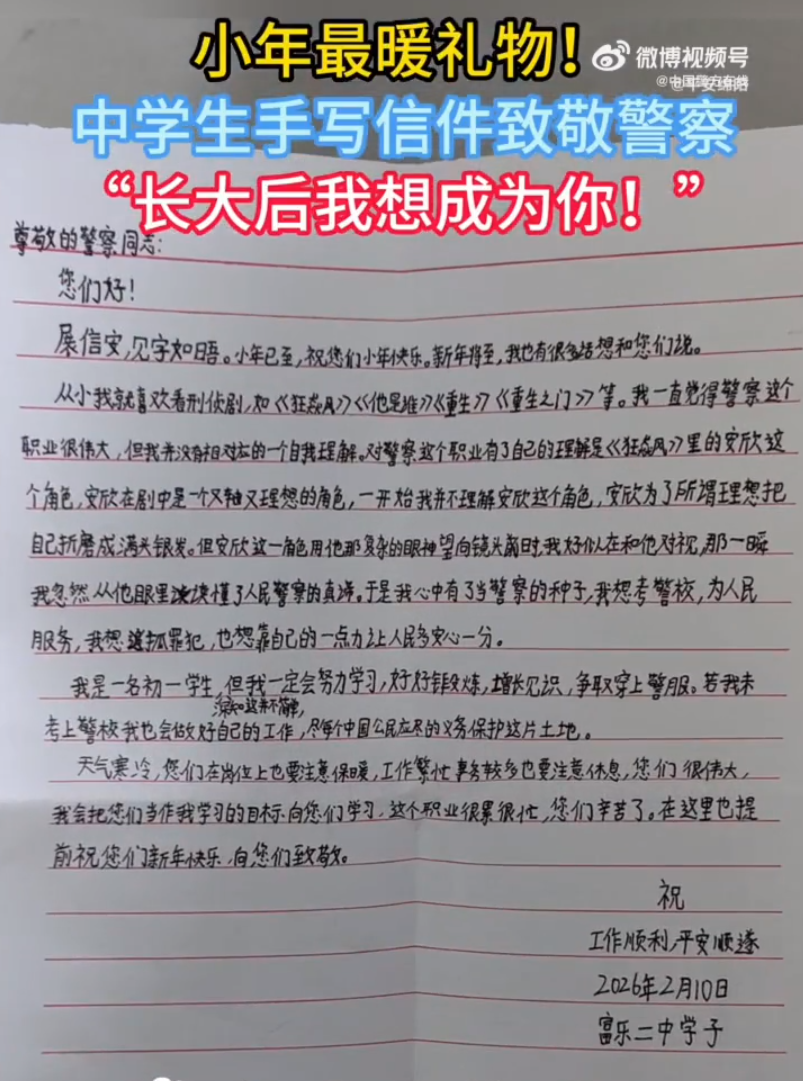 小年最暖礼物！
微博视频号
中学生手写信件致敬警察
“长大后我想成为你！”
尊敬的警察同志：
您们好！
展信安，见字如晤。小年已至，祝您们小年快乐。新年将至，我也有很多话想和您们说。
从小我就喜欢看刑侦剧，如《狂飙》《他是谁》《重生》《重生之门》等。我一直觉得警察这个
职业很伟大，但我并没有相对应的一个自我理解。对警察这个职业有了自己的理解是《狂飙》里的安欣这
个角色，安欣在剧中是一个又轴又理想的角色，一开始我并不理解安欣这个角色，安欣为了所谓理想把
自己折磨成满头银发。但安欣这一角色用他那复杂的眼神望向镜头前时，我好似在和他对视，那一瞬
我忽然从他眼里读懂了人民警察的真谛。于是我心中有了当警察的种子，我想考警校，为人民
服务，我想抓罪犯，也想靠自己的一点力让人民多安心一分。
我是一名初一学生，但我一定会努力学习，好好锻炼，增长见识，争取穿上警服。若我未
深知这并不简单，
考上警校我也会做好自己的工作，尽每个中国公民应尽的义务保护这片土地。
天气寒冷，您们在岗位上也要注意保暖，工作繁忙事务较多也要注意休息，您们很伟大，
我会把您们当作我学习的目标向您们学习，这个职业很累很忙，您们辛苦了。在这里也提
前祝您们新年快乐，向您们致敬。
祝
工作顺利，平安顺遂
2026年2月10日
富乐二中学子